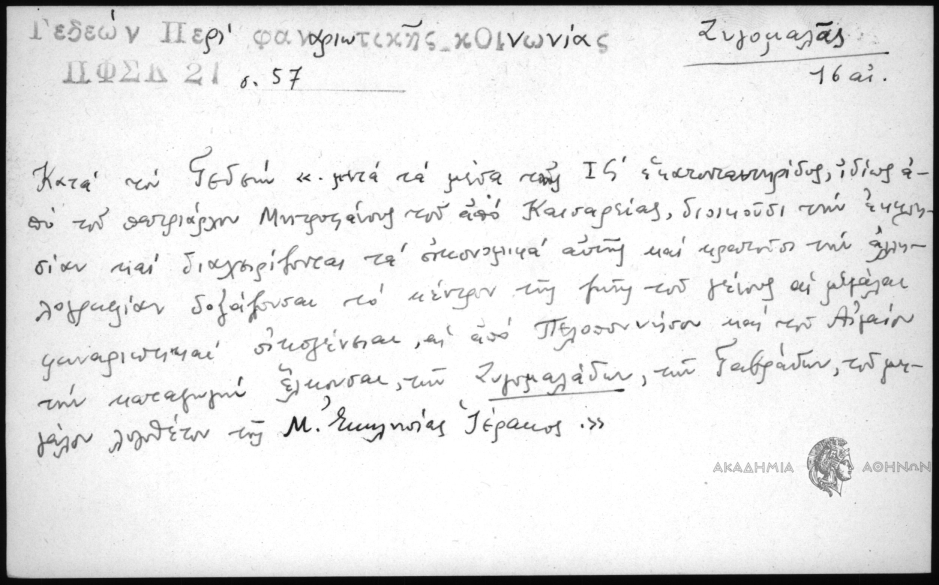 Γεδεών Περί φαναριωτικῆς κοινωνίας
ΠΦΣΚ 21 σ. 57
Ζυγομαλᾶς
16 αἰ.
Κατά τόν Γεδεών «.μετά τά μέσα τῆς ΙϚ́ ἑκατονταετηρίδος, ἰδίως ἀ-
πό τοῦ πατριάρχου Μητροφάνους τοῦ ἀπό Καισαρείας, διοικοῦσι τήν ἐκκλη-
σίαν καί διαχειρίζονται τά οἰκονομικά αὐτῆς καί κρατοῦσι τήν ἀλλη-
λογραφίαν δοξάζουσαι τό κέντρον τῆς ζωῆς τοῦ γένους αἱ μεγάλαι
φαναριωτικαί οἰκογένειαι, αἱ ἀπό Πελοποννήσου καί τοῦ Αἰγαίου
τήν καταγωγήν ἕλκουσαι, τῶν Ζυγομαλάδων, τῶν Γαβράδων, τοῦ με-
γάλου λογοθέτου τῆς Μ. Ἐκκλησίας Ἱέρακος.»
ΑΚΑΔΗΜΙΑ ΑΘΗΝΩΝ